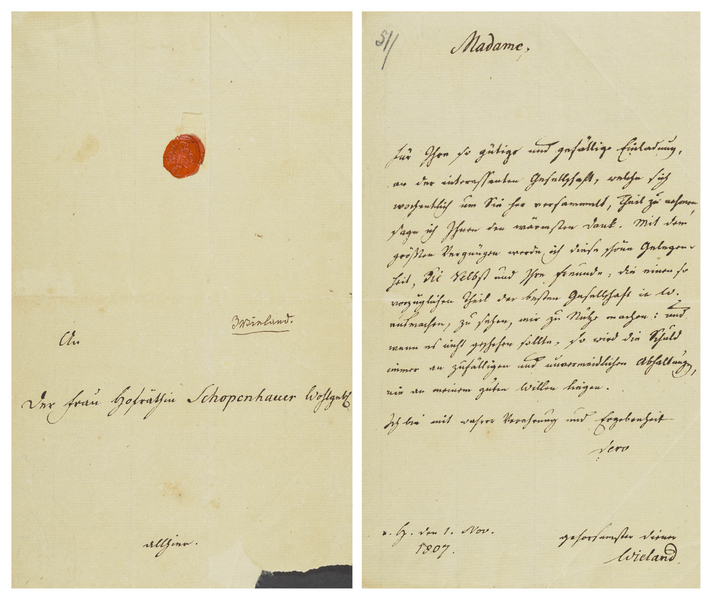 Wieland.
An
Der Frau Hofräthin Schopenhauer Wohlgeb.
allhier.
51/
Madame,
Für Ihre so gütige und gefällige Einladung,
an der interessanten Gesellschaft, welche sich
wöchentlich um Sie her versammelt, Theil zu nehmen,
sage ich Ihnen den wärmsten Dank. Mit dem
größten Vergnügen werde ich diese schöne Gelegen-
heit, Sie Selbst und Ihre Freunde, die einen so
vorzüglichen Theil der besten Gesellschaft in W.
ausmachen, zu sehen, mir zu Nutze machen: und
wenn es nicht geschehen sollte, so wird die Schuld
immer an zufälligen und unvermeidlichen Abhaltungen,
nie an meinem guten Willen liegen.
Ich bin mit wahrer Verehrung und Ergebenheit
Dero
v. H. den 1. Nov.
1807.
gehorsamster Diener
Wieland.